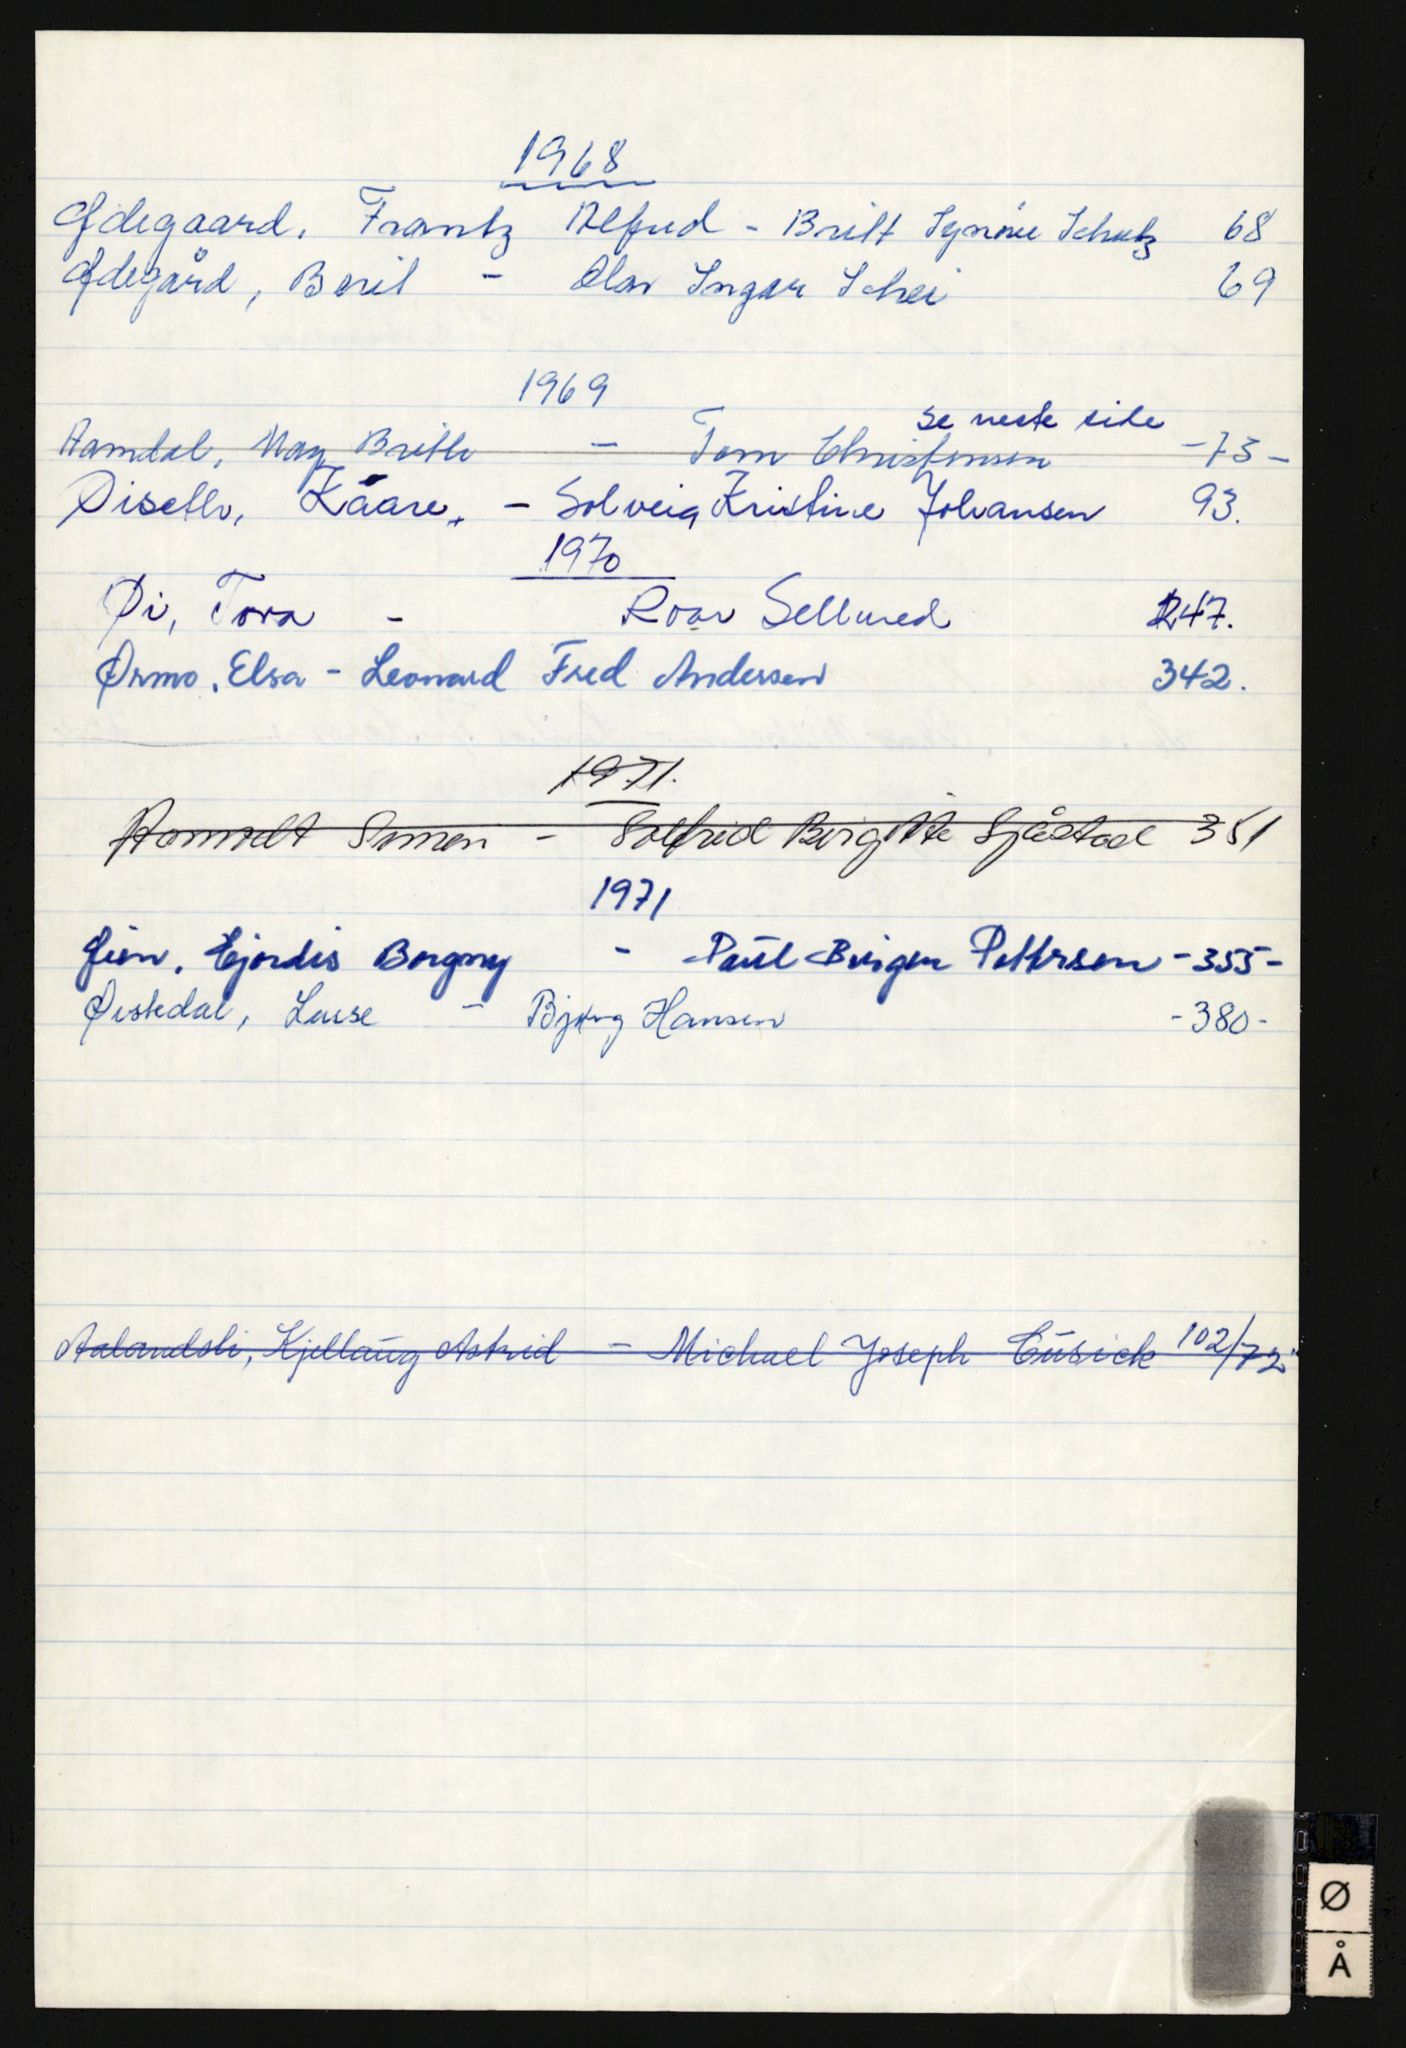 1968
Ødegaard, Frantz Alfred - Britt Synøve Schutz 68
Ødegård, Berit - Olav Ingar Schei 69
1969
se neste side
Aamdal, May Brith - Tom Christensen -73-
Øiseth, Kåare, - Solveig Kristine Johansen 93.
1970
Øi, Tora - Roar Sellured 247.
Ørmo, Elsa - Leonard Fred Andersen 342.
1971.
Aamodt Simen - Solfrid Birgitte Sjåstad 351
1971
Øien, Hjørdis Borgny - Paul Birger Pettersen -355-
Øistedal, Luise - Bjørg Hansen -380-
Aalandsli, Kjellaug Astrid - Michael Joseph Cusick 102/72
Ø
Å